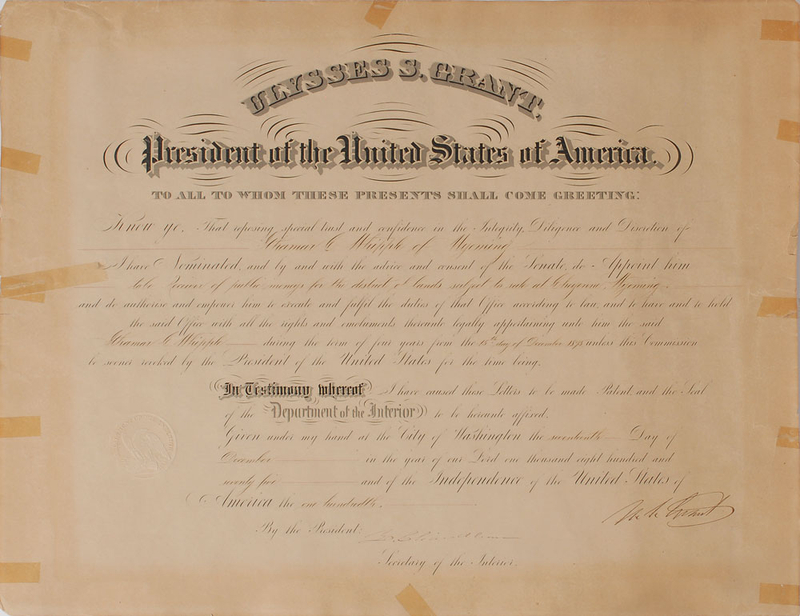 ULYSSES S. GRANT.
President of the United States of America.
TO ALL TO WHOM THESE PRESENTS SHALL COME GREETING:
Know ye. That reposing special trust and confidence in the Integrity, Diligence and Discretion of
Whipple of Wyoming
I have Nominated, and by and with the advice and consent of the Senate, do Appoint him
to be Receiver of public moneys for the district of lands subject to sale at Cheyenne, Wyoming,
and do authorise and empower him to execute and fulfil the duties of that Office according to law, and to have and to hold
the said Office with all the rights and emoluments thereunto legally appertaining unto him the said
Whipple during the term of four years from the 15th day of December 1875 unless this Commission
be sooner revoked by the President of the United States for the time being.
In Testimony whereof I have caused these Letters to be made Patent, and the Seal
of the Department of the Interior to be hereunto affixed.
Given under my hand at the City of Washington the seventeenth Day of
December in the year of our Lord one thousand eight hundred and
seventy five and of the Independence of the United States of
America the one hundredth.
U. S. Grant
By the President:
Secretary of the Interior.